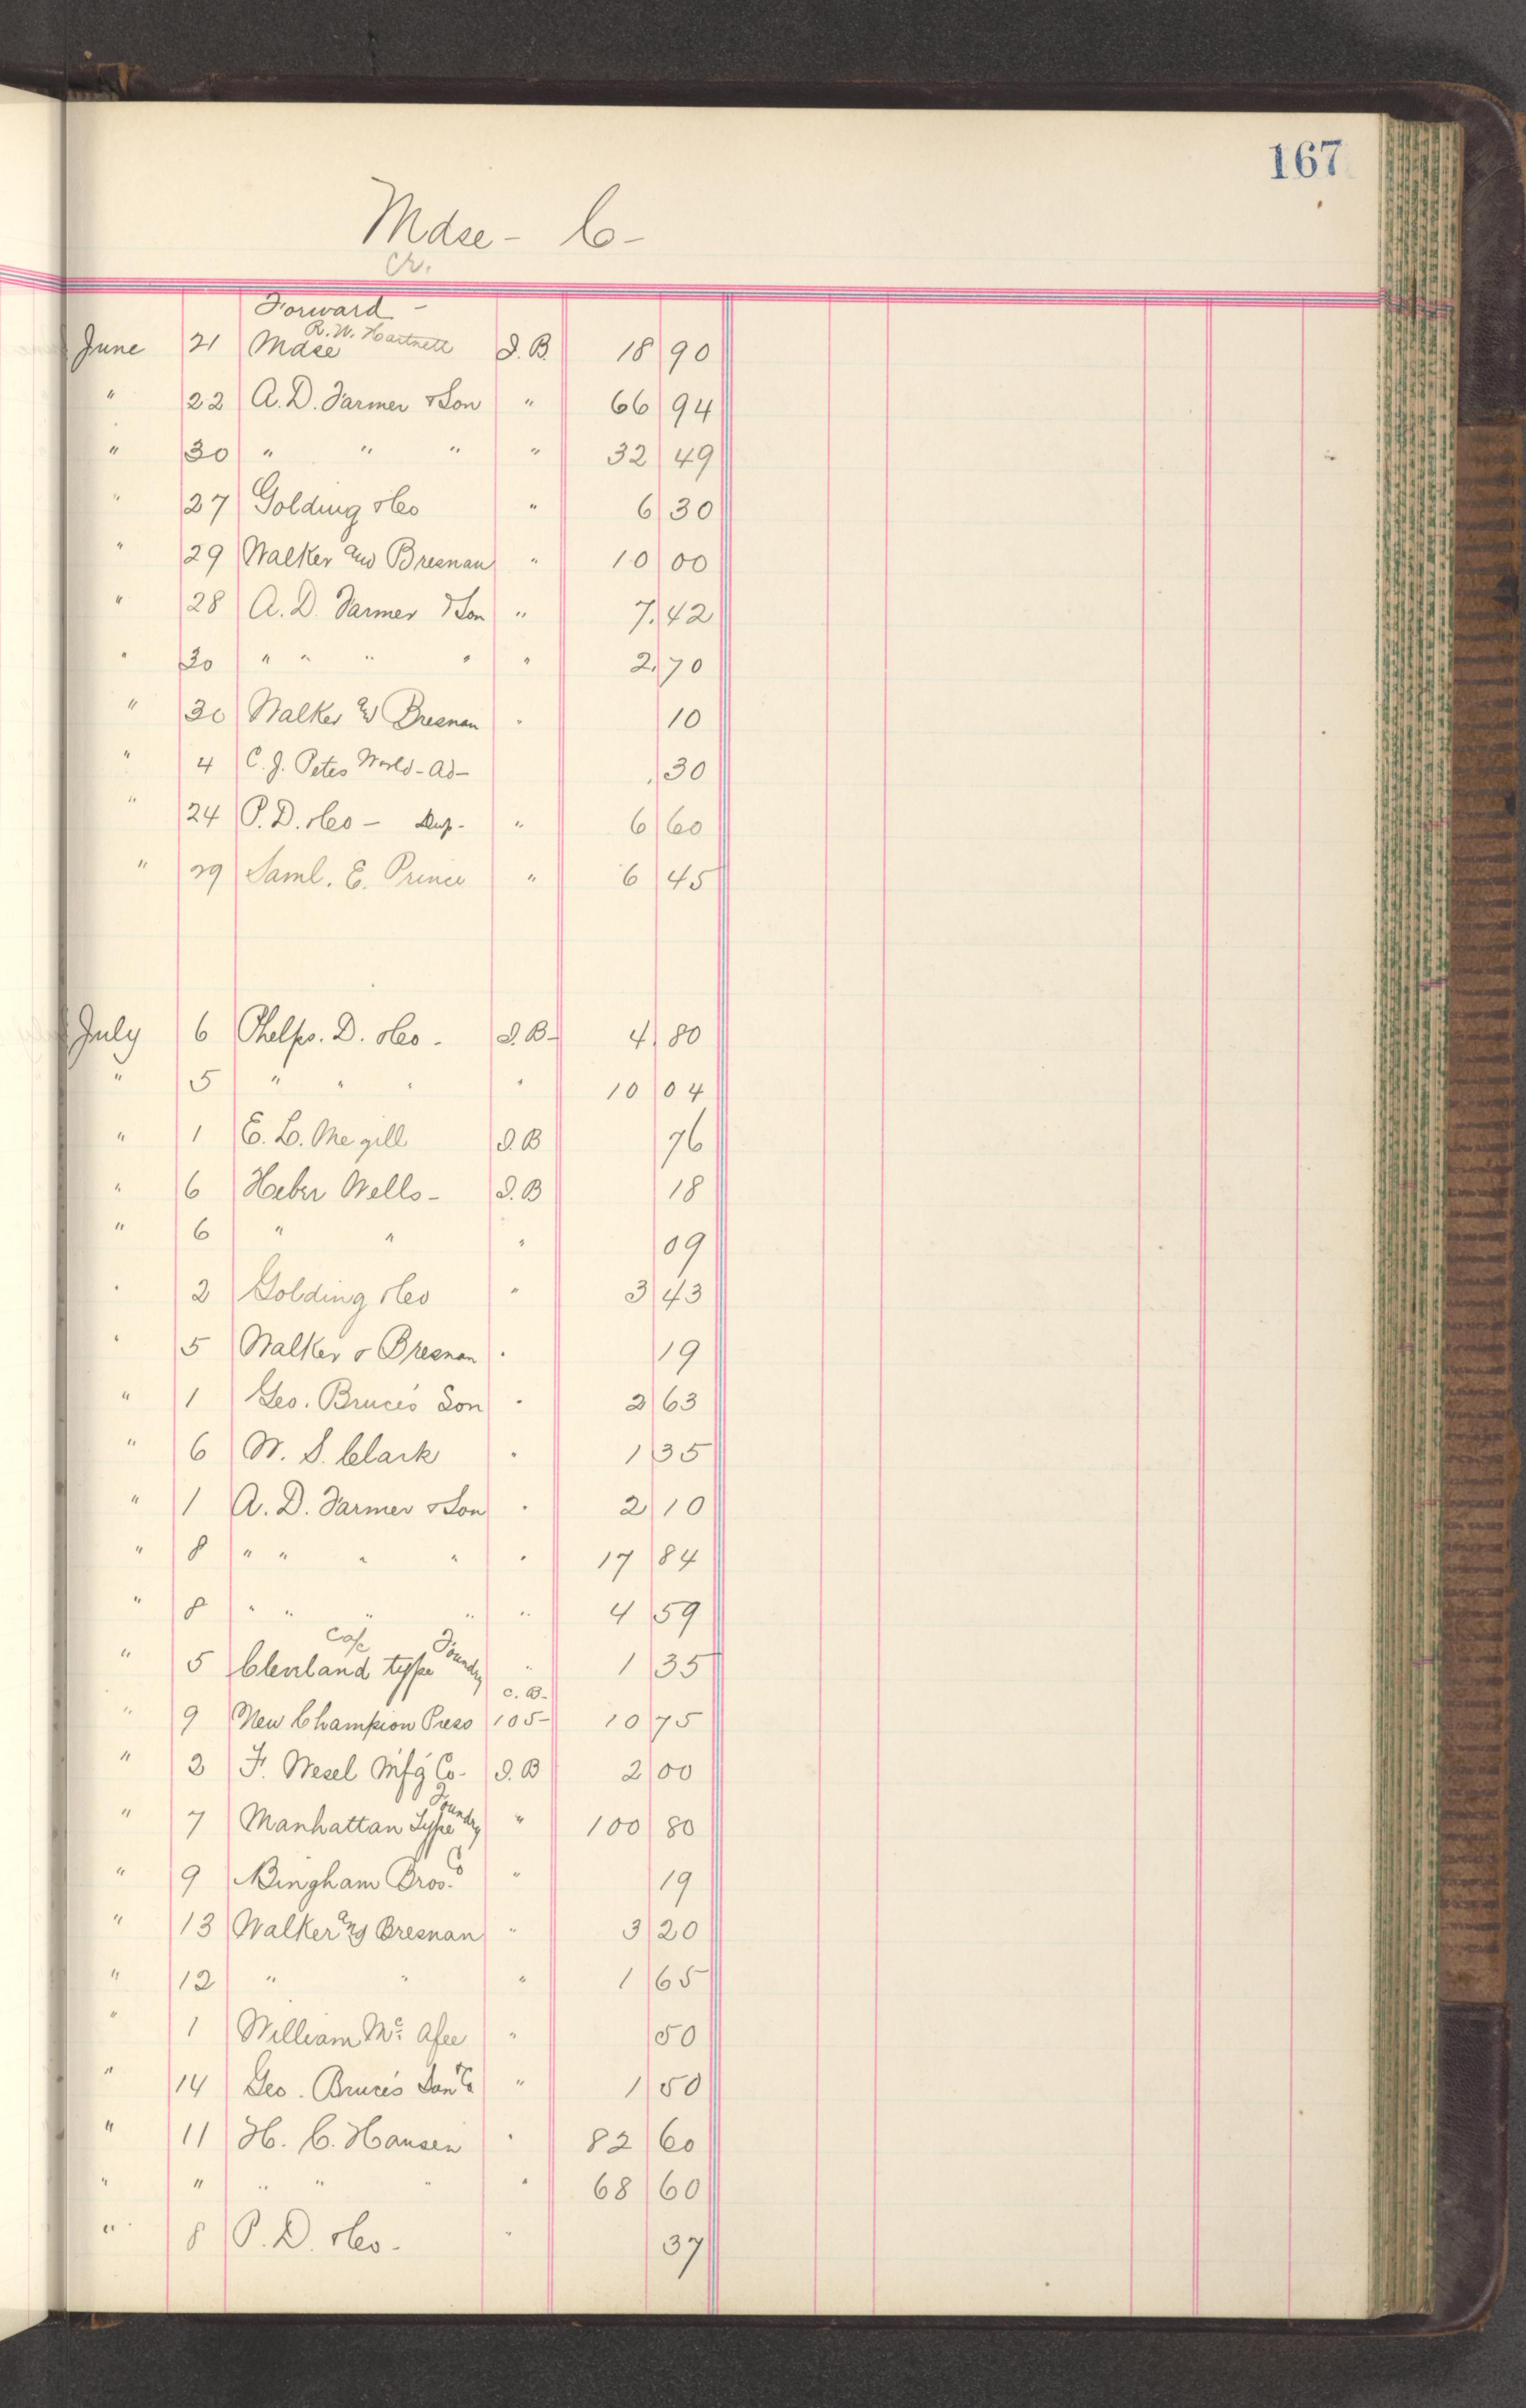 167
Mdse - C -
Cr.
Forward -
R. W. Hartnett
June 21 Mdse I. B. 18 90
" 22 A. D. Farmer & Son " 66 94
" 30 " " " " 32 49
" 27 Golding & Co " 6 30
" 29 Walker and Bresnan " 10 00
" 28 A. D. Farmer & Son " 7.42
" 30 " " " " " 2.70
" 30 Walker and Bresnan " 10
" 4 C. J. Peters World - Ad - .30
" 24 P. D. & Co - Dup. " 6 60
" 29 Saml. E. Prince " 6 45
July 6 Phelps. D. & Co. I. B- 4.80
" 5 " " " " 10 04
" 1 E. L. Megill I. B 76
" 6 Heber Wells - I. B 18
" 6 " " " 09
" 2 Golding & Co " 3 43
" 5 Walker & Bresnan " 19
" 1 Geo. Bruce's Son " 2 63
" 6 W. S. Clark " 1 35
" 1 A. D. Farmer & Son " 2 10
" 8 " " " " " 17 84
" 8 " " " " " 4 59
" 5 Cleveland type Foundry " 1 35
C. B-
" 9 New Champion Press 105- 10 75
" 2 F. Wesel M'f'g Co- I. B 2 00
" 7 Manhattan Type Foundry " 100 80
" 9 Bingham Bros. Co " 19
" 13 Walker and Bresnan " 3 20
" 12 " " " 1 65
" 1 William Mc Afee " 50
" 14 Geo. Bruce's Son & Co " 1 50
" 11 H. C. Hansen " 82 60
" " " " " " 68 60
" 8 P. D. & Co - " 37